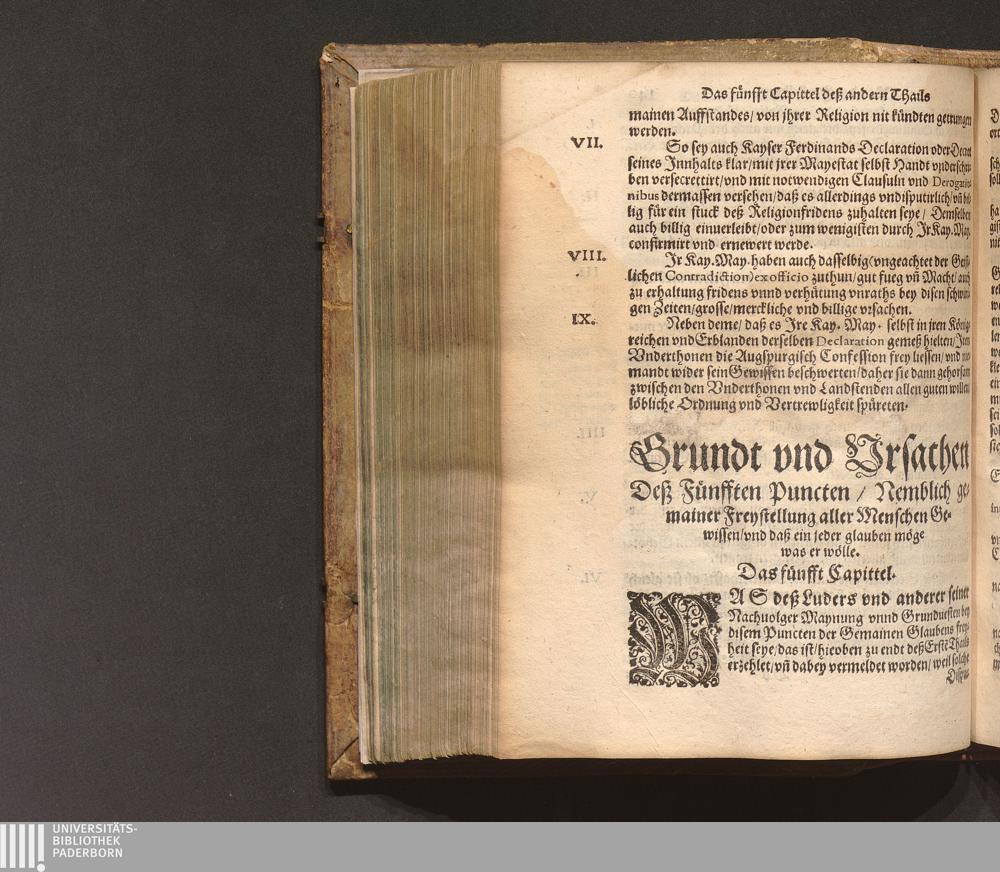 Das fünfft Capittel deß andern Thails
mainen Auffstandes/ von jhrer Religion nit kündten getrungen
werden.
VII.
So sey auch Kayser Ferdinands Declaration oder Decret
seines Innhalts klar/mit jrer Mayestat selbst Handt vnderschri-
ben versecrettirt/vnd mit notwendigen Clausuln vnd Derogatio-
nibus dermassen versehen/daß es allerdings vndisputirlich/vñ bil-
lig für ein stuck deß Religionfridens zuhalten seye/ Demselben
auch billig einuerleibt/oder zum wenigisten durch Jr Kay.May.
confirmirt vnd ernewert werde.
VIII.
Jr Kay.May.haben auch dasselbig(vngeachtet der Geist-
lichen Contradiction)ex officio zuthun/gut fueg vñ Macht/auch
zu erhaltung fridens vnnd verhütung vnraths bey disen schwiri-
gen Zeiten/grosse/merckliche vnd billige vrsachen.
IX.
Neben deme/ daß es Jre Kay. May. selbst in jren König-
reichen vnd Erblanden derselben Declaration gemeß hielten/Jren
Vnderthonen die Augspurgisch Confession frey liessen/vnd nie-
mandt wider sein Gewissen beschwerten/daher sie dann gehorsam
zwischen den Vnderthonen vnd Landstenden allen guten willen
löbliche Ordnung vnd Vertrewligkeit spüreten.
Grundt vnd Vrsachen
Deß Fünfften Puncten / Nemblich ge-
mainer Freystellung aller Menschen Ge-
wissen/vnd daß ein jeder glauben möge
was er wölle.
Das fünfft Capittel.
WAS deß Luders vnd anderer seiner
Nachuolger Maynung vnnd Grunduesten bey
disem Puncten der Gemainen Glaubens frey-
heit seye/das ist/hieoben zu endt deß Erstē Thails
erzehlet/vñ dabey vermeldet worden/weil solche
UNIVERSITÄTS-
BIBLIOTHEK
PADERBORN